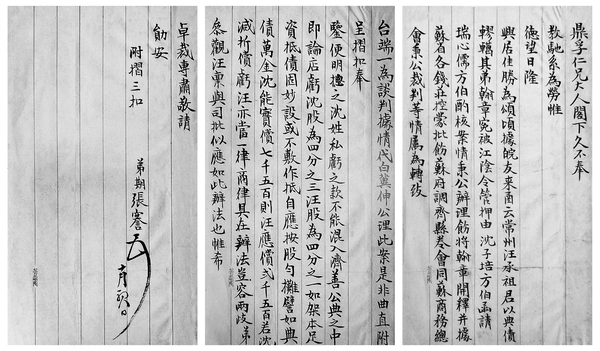 鼎孚仁兄大人閣下久不奉
教馳系為勞惟
德望日隆
興居佳勝為頌頃據皖友來函云常州汪承祖君以典債
轇轕其弟翰章冤被江陰令管押由 沈子培方伯函請
瑞心儒方伯酌核案情秉公辦理飭將翰章開釋并據
蘇省各錢莊控稟批飭蘇府調齊縣卷會同蘇商務總
會秉公裁判等情屬為轉致
台端一為談判據情代白冀伸公理此案是非曲直附
呈摺扣奉
鑒便明之沈姓私虧之款不能混入濟善公典之中
即論店虧沈股為四分之三汪股為四分之一如架本足
資抵債固妙設或不敷作抵自應按股勻攤譬如典
債萬金沈能實償七千五百則汪應償弍千五百若沈
減折償虧汪亦當一律商律具在辦法豈容兩歧弟
觀汪東與司批似應如此辦法也惟希
卓裁專肅敬請
勛安
附摺三扣
弟期張謇